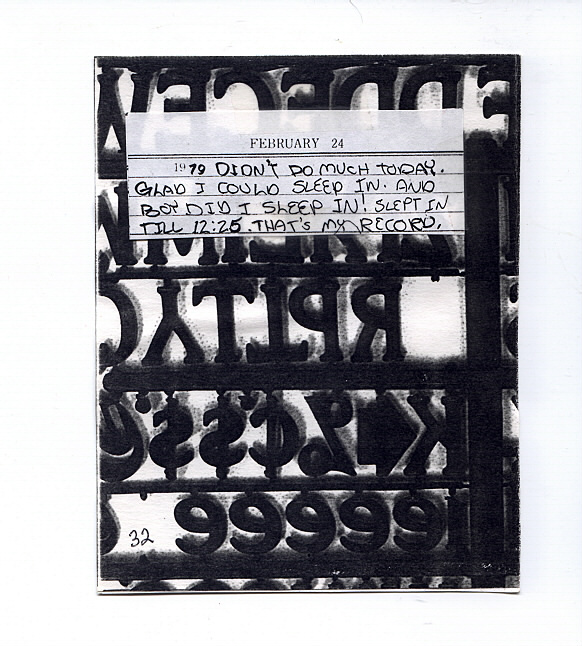 FEBRUARY 24
1979 DIDN'T DO MUCH TODAY.
GLAD I COULD SLEEP IN. AND
BOY DID I SLEEP IN! SLEPT IN
TILL 12:25. THAT'S MY RECORD.
YTIPR
$$¢
32 999999